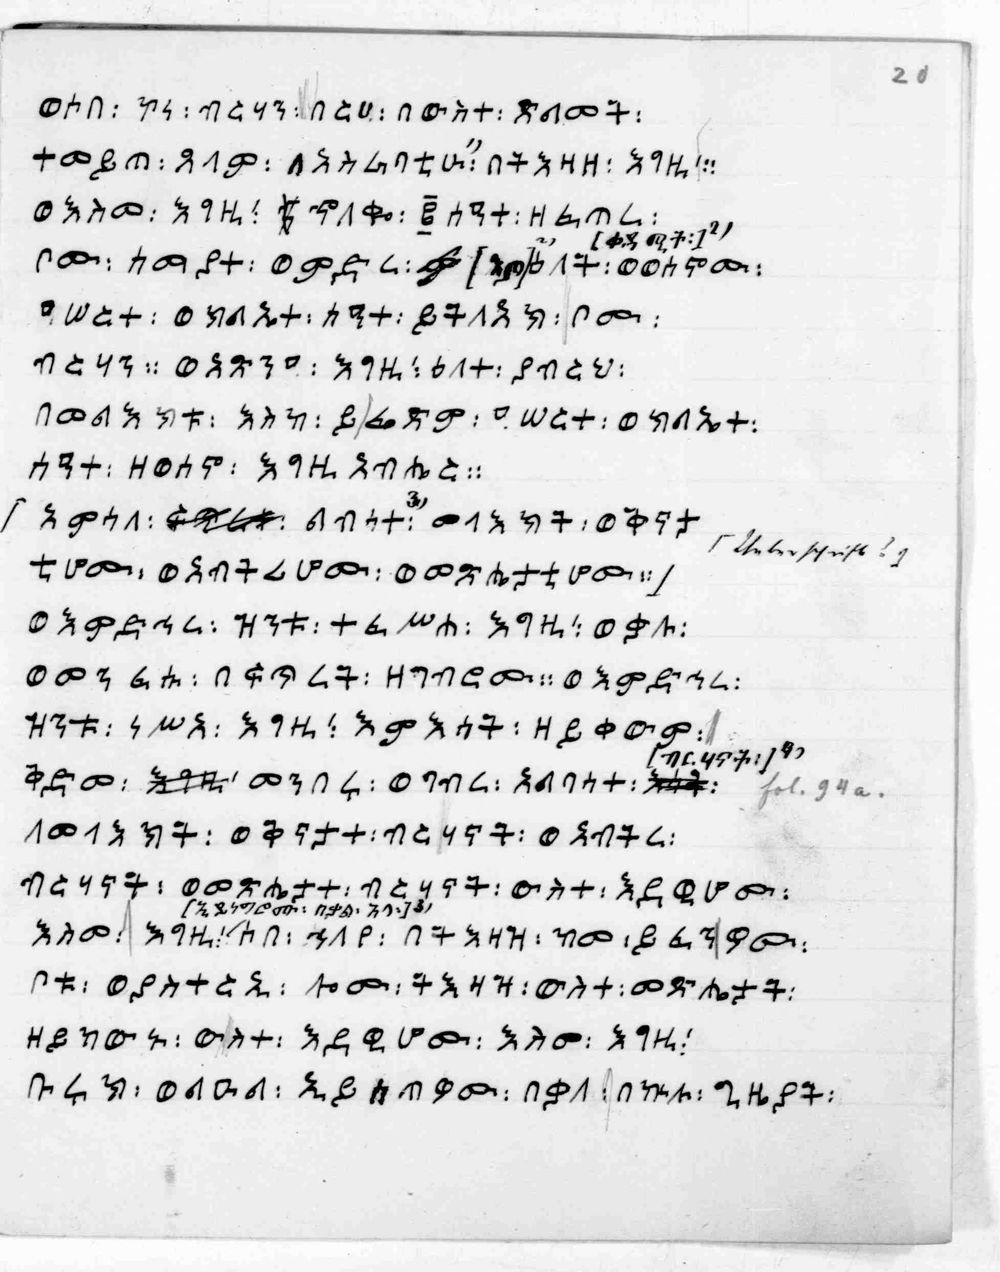 20
ወሶበ፡ ኮነ፡ ብርሃን፡ በርሀ፡ በውስተ፡ ጽልመት፡
ተመይጠ፡ ዳኅም፡ ለእስራኪቲሁ፡ በትእዛዘ፡ እግዚ፡፡
ወእስመ፡ እግዚ፡ ሰማት፡ ዘፈጠረ፡
[ቀዳሚት፡]²⁾
ቦሙ፡ ሰማያተ፡ ወምድረ፡ ዕለት፡ ወወሰኖሙ፡
ገሠርተ፡ ወክልኤተ፡ ሰዓተ፡ ይትለአክ፡ ቦሙ፡
ብርሃን፡፡ ወእድንገ፡ እግዚ፡ ዕለተ፡ ያብርህ፡
በመልእክቱ፡ እስከ፡ ይፌጽም፡ ገሠርተ፡ ወክልኤተ፡
ሰዓተ፡ ዘወሰኖ፡ እግዚአብሔር፡፡
እምሰለ፡ ልብሰተ፡³⁾ መላእክት፡ ወቅናታ
ቲሆሙ፡ ወአብትሪሆሙ፡ ወመጽሔታቲሆሙ፡፡
ወእምድኅረ፡ ዝንቱ፡ ተፈሥሐ፡ እግዚ፡ ወቃሉ፡
ወመንፈሱ፡ በፍጥረት፡ ዘገብርሙ፡፡ ወእምድኅረ፡
ዝንቱ፡ ነሥአ፡ እግዚ፡ እምእሳት፡ ዘይቀውም፡
[ብርሃናት፡]⁴⁾
ቅድመ፡ መንበሩ፡ ወገብረ፡ አልባሰተ፡ fol. 94a.
ለመላእክት፡ ወቅናታተ፡ ብርሃናት፡ ወአብትረ፡
ብርሃናት፡ ወመጽሔታተ፡ ብርሃናት፡ ውስተ፡ እደዊሆሙ፡
እስመ፡ እግዚ፡ ሶበ፡ ኀለየ፡ በትእዛዝ፡ ከመ፡ ይፈንዎሙ፡
ቦቱ፡ ወያስተርኢ፡ ሎሙ፡ ትእዛዝ፡ ውስተ፡ መጽሔታት፡
ዘይከውኑ፡ ውስተ፡ እደዊሆሙ፡ እስመ፡ እግዚ፡
ቡሩክ፡ ወልዑል፡ ኢይጸውዖሙ፡ በቃለ፡ በኵሉ፡ ጊዜያት፡